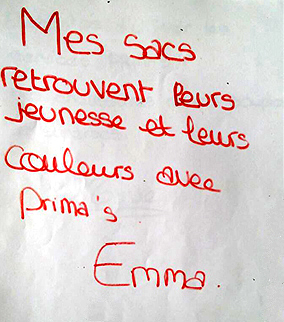 Mes sacs
retrouvent leurs
jeunesse et leurs
couleurs avec
prima's
Emma.